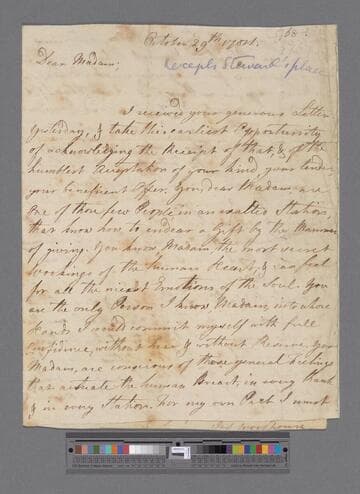 October 29th 1781.
Dear Madam;
accepts Steward's place
I received your generous Letter
yesterday, & take this earliest Opportunity
of acknowledging the Receipt of that, & of the
humblest Acceptation of your kind, your tender,
your beneficent Offer. You dear Madam are
one of those few People in an exalted Station,
that know how to endear a Gift by the Manner
of giving. You know, Madam, the most secret
workings of the human Heart, & can feel
for all the nicest Emotions of the Soul. You
are the only Person I know Madam, into whose
Hands I could commit myself with full
Confidence, without Fear & without Reserve. You
Madam, are conscious of those general feelings
that actuate the human Breast, in every Rank
& in every Station. For my own Part I must